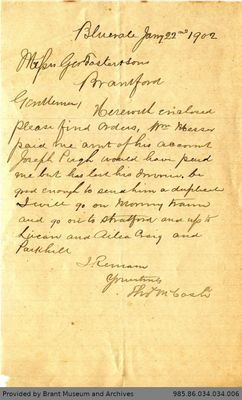 Bluevale Jany 22nd 1902
Messrs Geo Foster & Sons
Brantford
Gentlemen Herewith enclosed
please find Orders, Wm Messer
paid me amt of his account
Joseph Pugh would have paid
me but has lost his Invoice, be
good enough to send him a duplicate
I will go on Morning train
and go on to Stratford and up to
Lucan and Ailsa Craig and
Parkhill
I Remain
Yours truly
Thos McCosh
Provided by Brant Museum and Archives
985.86.034.034.006